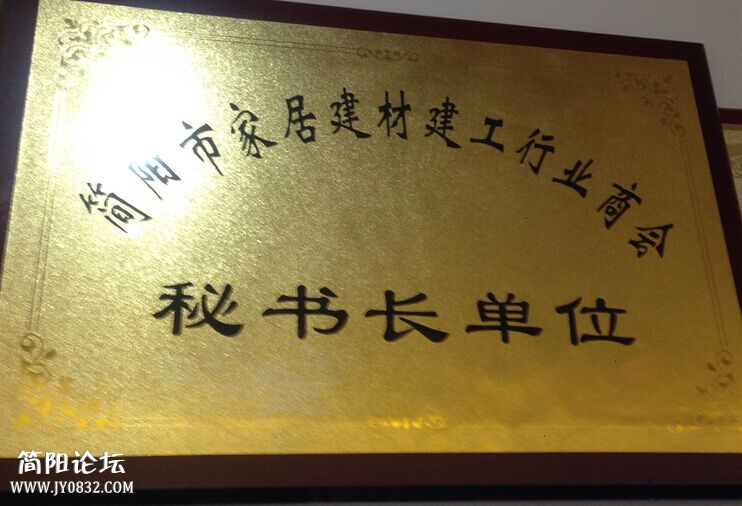 简阳市家居建材建工行业商会
秘书长单位
简阳论坛
WWW.JY0832.COM